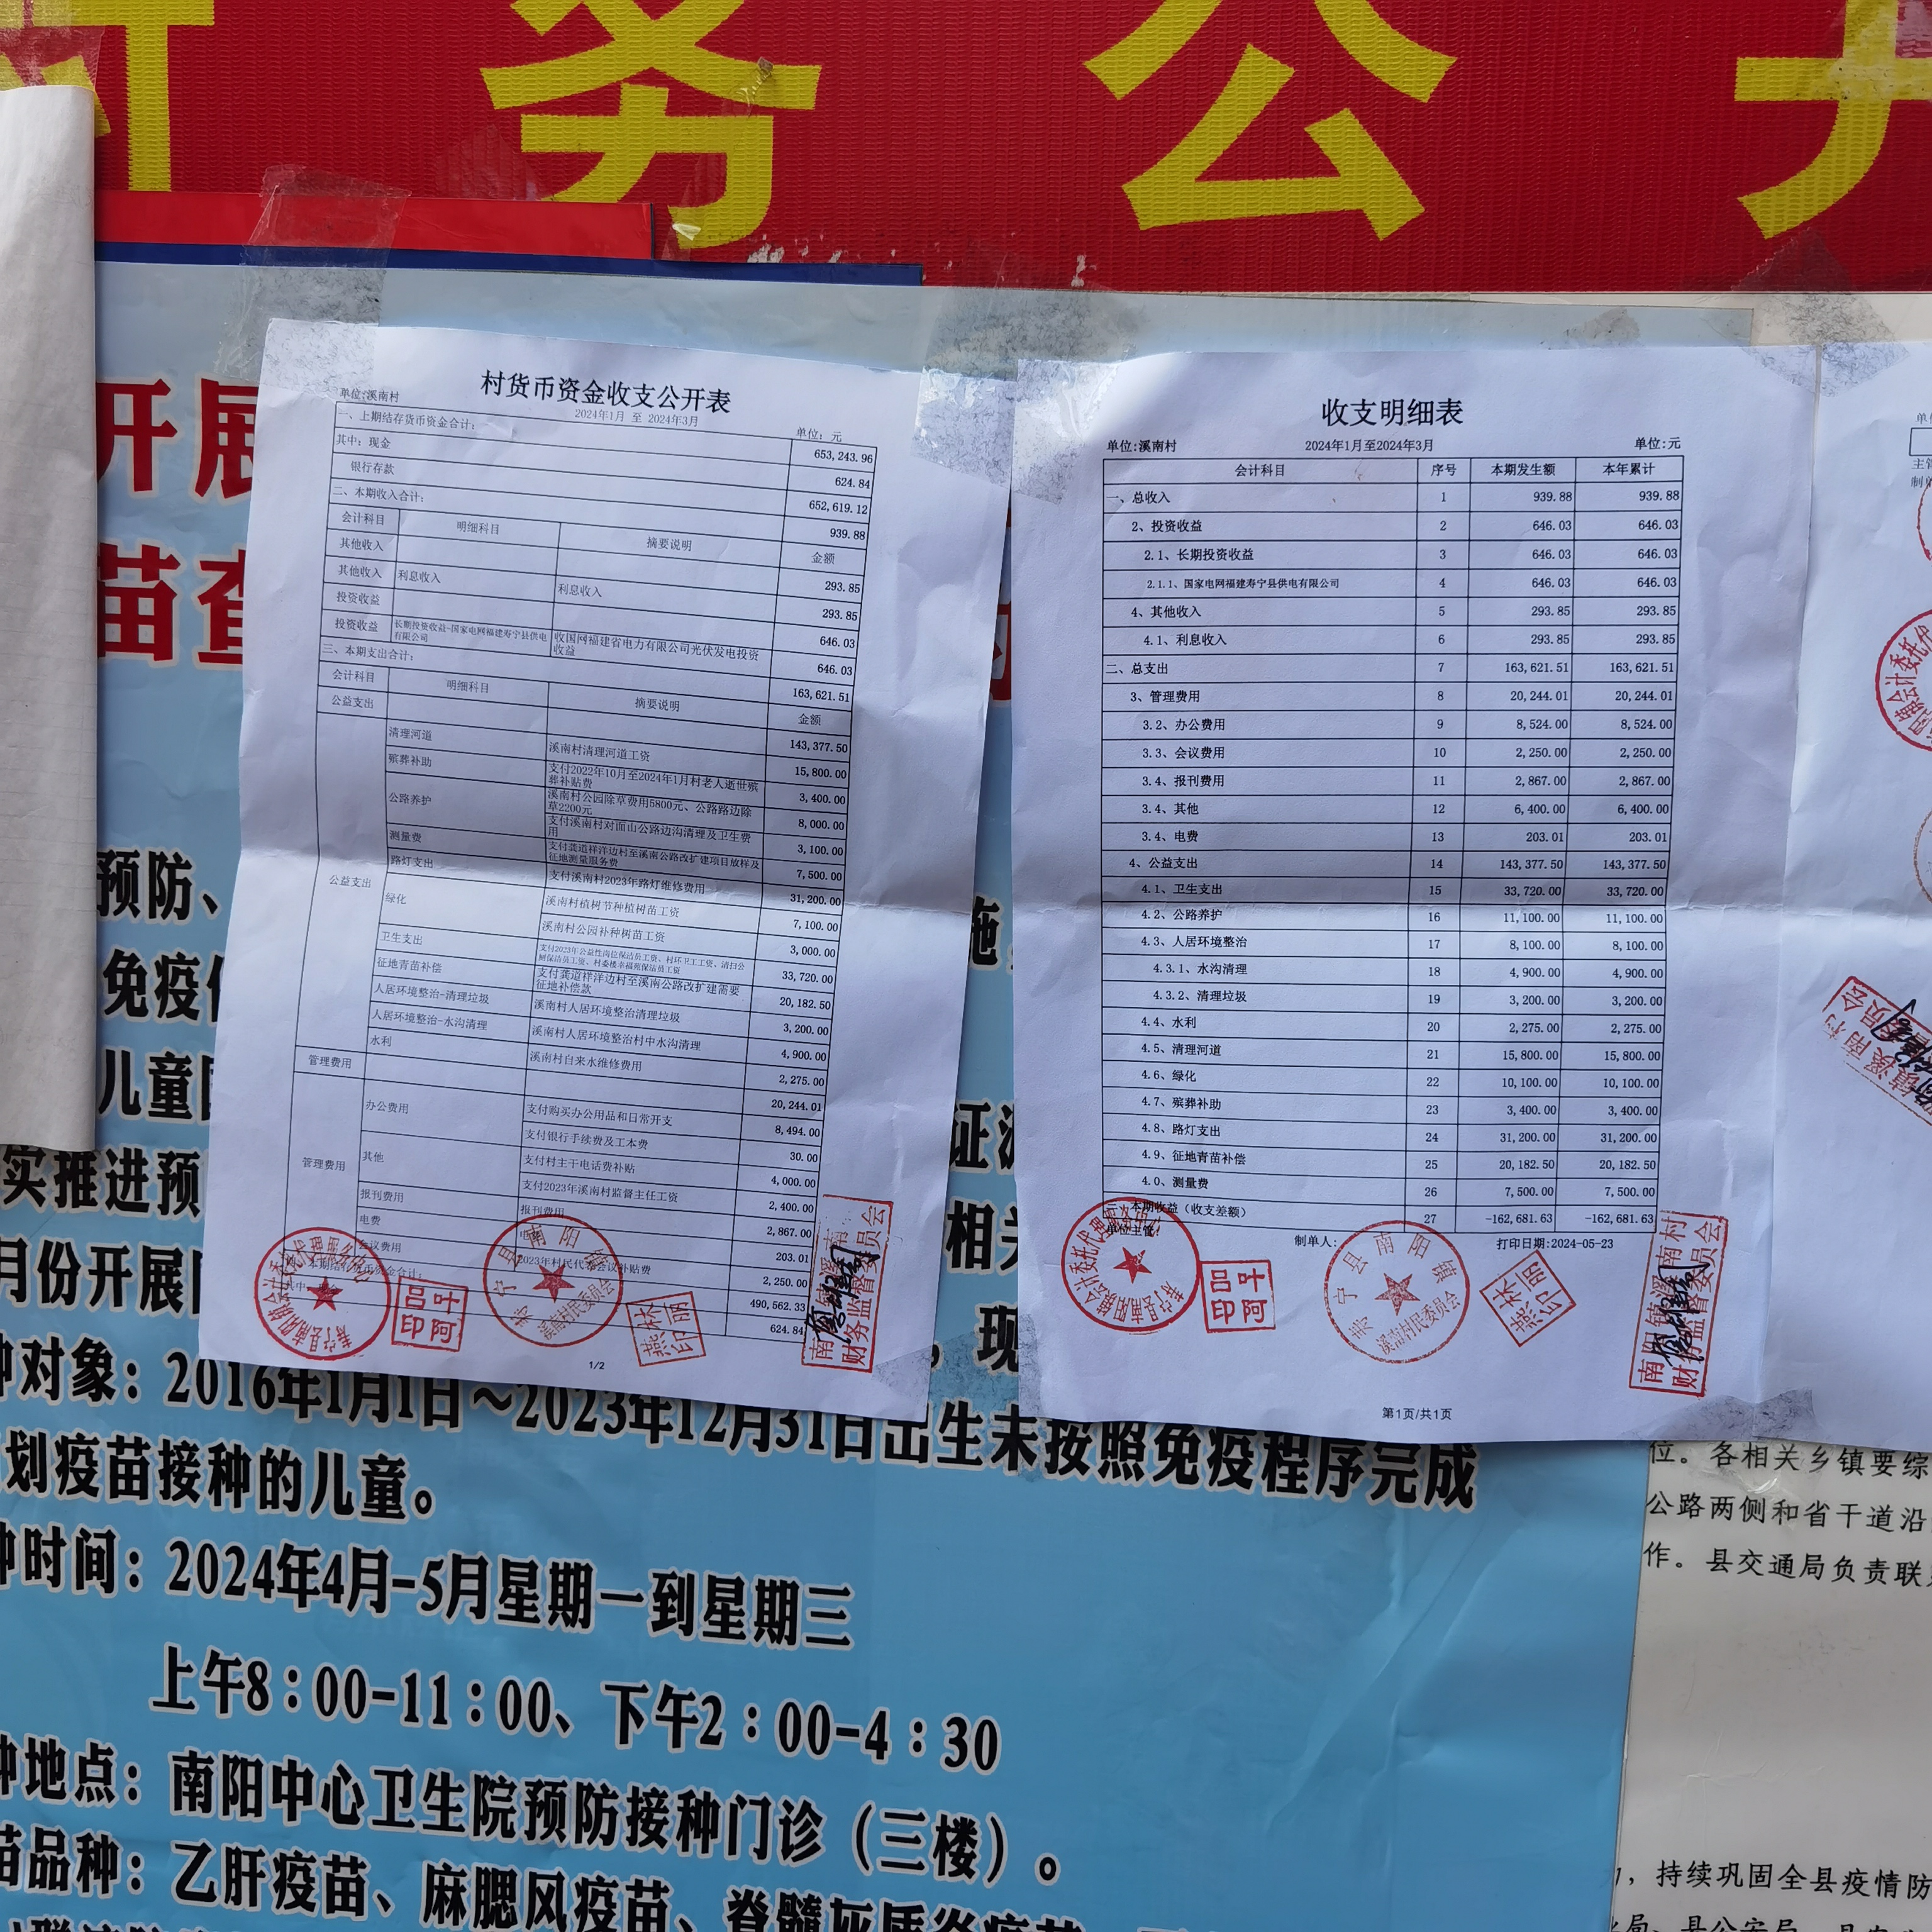 务公开
村货币资金收支公开表
单位:溪南村
2024年1月 至 2024年3月
单位: 元
一、上期结存货币资金合计: 653,243.96
其中: 现金 624.84
银行存款 652,619.12
二、本期收入合计: 939.88
会计科目 明细科目 摘要说明 金额
其他收入 293.85
其他收入 利息收入 利息收入 293.85
投资收益 646.03
投资收益 长期投资收益-国家电网福建寿宁县供电有限公司 收国网福建省电力有限公司光伏发电投资收益 646.03
三、本期支出合计: 163,621.51
会计科目 明细科目 摘要说明 金额
公益支出 143,377.50
公益支出
清理河道 溪南村清理河道工资 15,800.00
殡葬补助 支付2022年10月至2024年1月村老人逝世殡葬补贴费 3,400.00
公路养护 溪南村公园除草费用5800元、公路路边除草2200元 8,000.00
支付溪南村对面山公路边沟清理及卫生费用 3,100.00
测量费 支付龚道祥洋边村至溪南公路改扩建项目放样及征地测量服务费 7,500.00
路灯支出 支付溪南村2023年路灯维修费用 31,200.00
绿化 溪南村植树节种植树苗工资 7,100.00
溪南村公园补种树苗工资 3,000.00
卫生支出 支付2023年公益性岗位保洁员工资、村环卫工工资、清扫公厕保洁员工资、村委楼幸福苑保洁员工资 33,720.00
征地青苗补偿 支付龚道祥洋边村至溪南公路改扩建需要征地补偿款 20,182.50
人居环境整治-清理垃圾 溪南村人居环境整治清理垃圾 3,200.00
人居环境整治-水沟清理 溪南村人居环境整治村中水沟清理 4,900.00
水利 溪南村自来水维修费用 2,275.00
管理费用 20,244.01
管理费用
办公费用 支付购买办公用品和日常开支 8,494.00
支付银行手续费及工本费 30.00
其他 支付村主干电话费补贴 4,000.00
支付2023年溪南村监督主任工资 2,400.00
报刊费用 报刊费用 2,867.00
电费 203.01
会议费用 2023年村民代表会议补贴费 2,250.00
490,562.33
624.84
1/2
寿宁县南阳镇
溪南村民委员会
吕叶印阿
林丽燕印
财务监督委员会
收支明细表
单位:溪南村 2024年1月至2024年3月 单位:元
会计科目 序号 本期发生额 本年累计
一、总收入 1 939.88 939.88
2、投资收益 2 646.03 646.03
2.1、长期投资收益 3 646.03 646.03
2.1.1、国家电网福建寿宁县供电有限公司 4 646.03 646.03
4、其他收入 5 293.85 293.85
4.1、利息收入 6 293.85 293.85
二、总支出 7 163,621.51 163,621.51
3、管理费用 8 20,244.01 20,244.01
3.2、办公费用 9 8,524.00 8,524.00
3.3、会议费用 10 2,250.00 2,250.00
3.4、报刊费用 11 2,867.00 2,867.00
3.4、其他 12 6,400.00 6,400.00
3.4、电费 13 203.01 203.01
4、公益支出 14 143,377.50 143,377.50
4.1、卫生支出 15 33,720.00 33,720.00
4.2、公路养护 16 11,100.00 11,100.00
4.3、人居环境整治 17 8,100.00 8,100.00
4.3.1、水沟清理 18 4,900.00 4,900.00
4.3.2、清理垃圾 19 3,200.00 3,200.00
4.4、水利 20 2,275.00 2,275.00
4.5、清理河道 21 15,800.00 15,800.00
4.6、绿化 22 10,100.00 10,100.00
4.7、殡葬补助 23 3,400.00 3,400.00
4.8、路灯支出 24 31,200.00 31,200.00
4.9、征地青苗补偿 25 20,182.50 20,182.50
4.0、测量费 26 7,500.00 7,500.00
三、本期收益（收支差额） 27 -162,681.63 -162,681.63
单位主管: 制单人: 打印日期:2024-05-23
寿宁县南阳镇
溪南村民委员会
吕叶印阿
林丽燕印
南阳镇溪南村
财务监督委员会
第1页/共1页
开展
苗查
预防、
免疫
儿童
实推进预
月份开展
种对象：2016年1月1日～2023年12月31日出生未按照免疫程序完成
划疫苗接种的儿童。
种时间：2024年4月-5月星期一到星期三
上午8：00-11：00、下午2：00-4：30
种地点：南阳中心卫生院预防接种门诊（三楼）。
苗品种：乙肝疫苗、麻腮风疫苗、脊髓灰质炎疫苗
位。各相关乡镇要综
公路两侧和省干道沿
作。县交通局负责联
，持续巩固全县疫情防